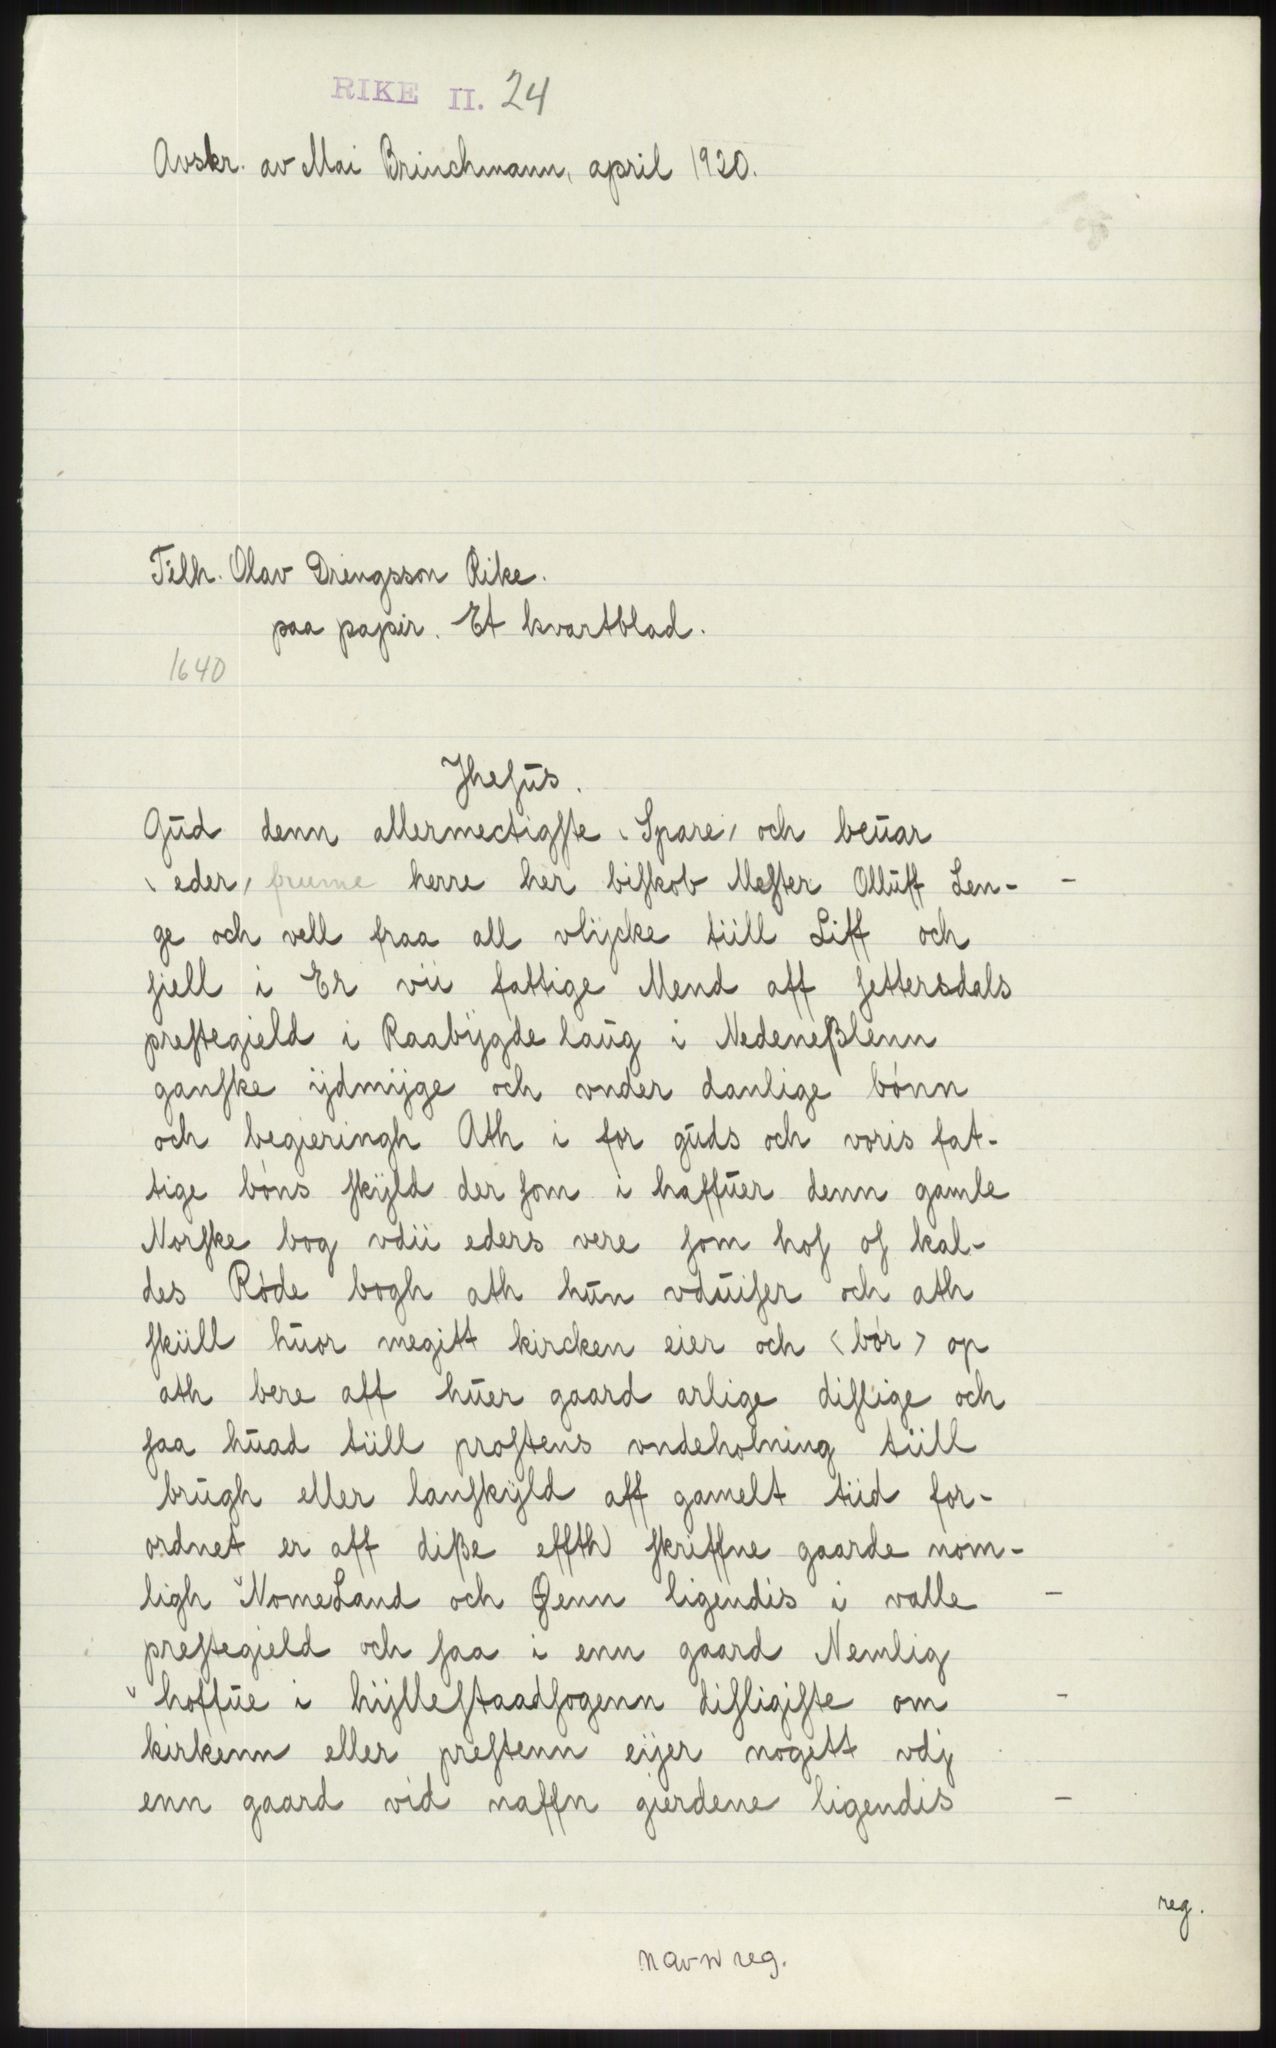 RIKE II. 24
Avskr. av Mai Brinchmann, april 1920.
Tilh. Olav Drengsson Rike.
paa papir. Et kvartblad.
1640
Jhesūs.
Gūd denn allermectigste ‹Spare› och beūar
‹eder› frume herre her biskob Mester Ollūff Len- -
ge och vell fraa all vlÿcke tiill Liff och
siell i Er vii fattige Mend aff settersdals
prestegield i Raabÿgde laūg i Nedeneßlenn
ganske ÿdmÿge och vnder danlige bónn
och begieringh Ath i for gūds och voris fat-
tige bóns skÿld der som i haffūer denn gamle
Norske bog vdii eders vere som hos os kal-
des Róde bogh ath hūn vdūiser och ath
skiill hūor megitt kircken eier och <bór> op
ath bere aff hūer gaard arlige dislige och
saa hūad tiill prostens vndeholning tiill
brūgh eller lanskÿld aff gamelt tiid for-
ordnet er aff diße effth) skriffne gaarde nom-
ligh ˅NomeLand och Øenn ligendis i valle -
prestegield och saa i enn gaard Nemlig
˅hoffūe i hÿllestaadsogenn disligiste om -
kirkenn eller prestenn eÿer nogett vdj
enn gaard vid naffn gierdene ligendis -
reg.
navnreg.